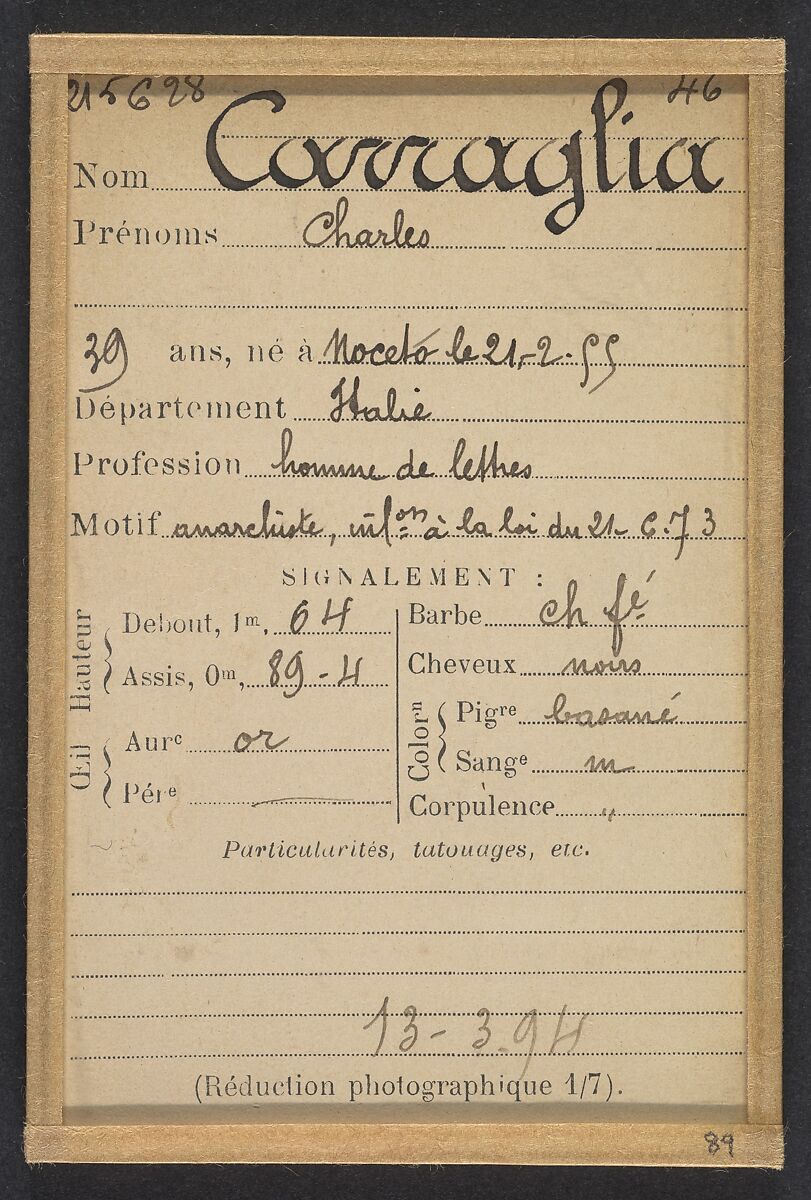 215628 46
Nom Carraglia
Prénoms Charles
39 ans, né à Noceto le 21-2-55
Département Italie
Profession homme de lettres
Motif anarchiste, infon à la loi du 21-6.73
SIGNALEMENT :
Hauteur
Debout, 1m, 64
Assis, 0m, 89-4
Œil
Aurc or
Pére
Barbe ch fé
Cheveux noirs
Colorn
Pigre basané
Sange m
Corpulence "
Particularités, tatouages, etc.
13-3.94
(Réduction photographique 1/7).
89